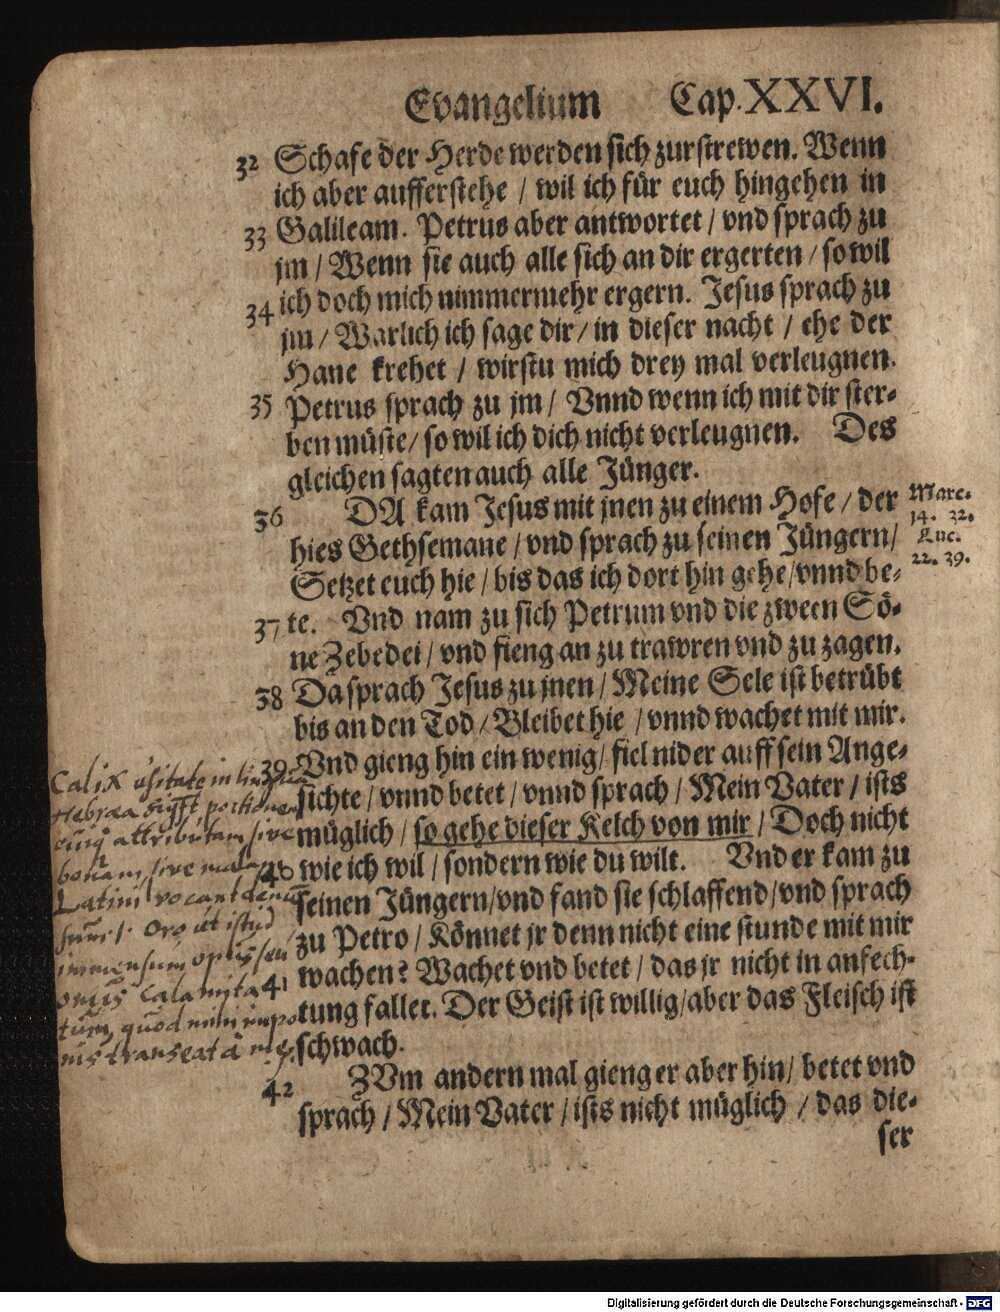 Evangelium Cap. XXVI.
32 Schafe der Herde werden sich zurstrewen. Wenn
ich aber aufferstehe / wil ich für euch hingehen in
33 Galileam. Petrus aber antwortet / vnd sprach zu
jm / Wenn sie auch alle sich an dir ergerten / so wil
34 ich doch mich nimmermehr ergern. Jesus sprach zu
jm / Warlich ich sage dir / in dieser nacht / ehe der
Hane krehet / wirstu mich drey mal verleugnen.
35 Petrus sprach zu jm / Vnnd wenn ich mit dir ster-
ben müste / so wil ich dich nicht verleugnen. Des
gleichen sagten auch alle Jünger.
36 DA kam Jesus mit jnen zu einem Hofe / der
hies Gethsemane / vnd sprach zu seinen Jüngern /
Setzet euch hie / bis das ich dort hin gehe / vnnd be-
37 te. Vnd nam zu sich Petrum vnd die zween Sö-
ne Zebedei / vnd fieng an zu trawren vnd zu zagen.
38 Da sprach Jesus zu jnen / Meine Sele ist betrübt
bis an den Tod / Bleibet hie / vnnd wachet mit mir.
39 Vnd gieng hin ein wenig / fiel nider auff sein Ange-
sichte / vnnd betet / vnnd sprach / Mein Vater / ists
müglich / so gehe dieser Kelch von mir / Doch nicht
40 wie ich wil / sondern wie du wilt. Vnd er kam zu
seinen Jüngern / vnd fand sie schlaffend / vnd sprach
zu Petro / Könnet jr denn nicht eine stunde mit mir
41 wachen? Wachet vnd betet / das jr nicht in anfech-
tung fallet. Der Geist ist willig / aber das Fleisch ist
schwach.
42 ZVm andern mal gieng er aber hin / betet vnd
sprach / Mein Vater / ists nicht müglich / das die-
ser
Marc.
14. 32.
Luc.
22. 39.
Calix usitate in lingua
Hebræa portionem
attributam sive
bonam, sive malam
Latini vocant
Oro ut istud
immensum opus seu
onus calamita
tum, quod mihi impo
nis transeat à me.
Digitalisierung gefördert durch die Deutsche Forschungsgemeinschaft - DFG